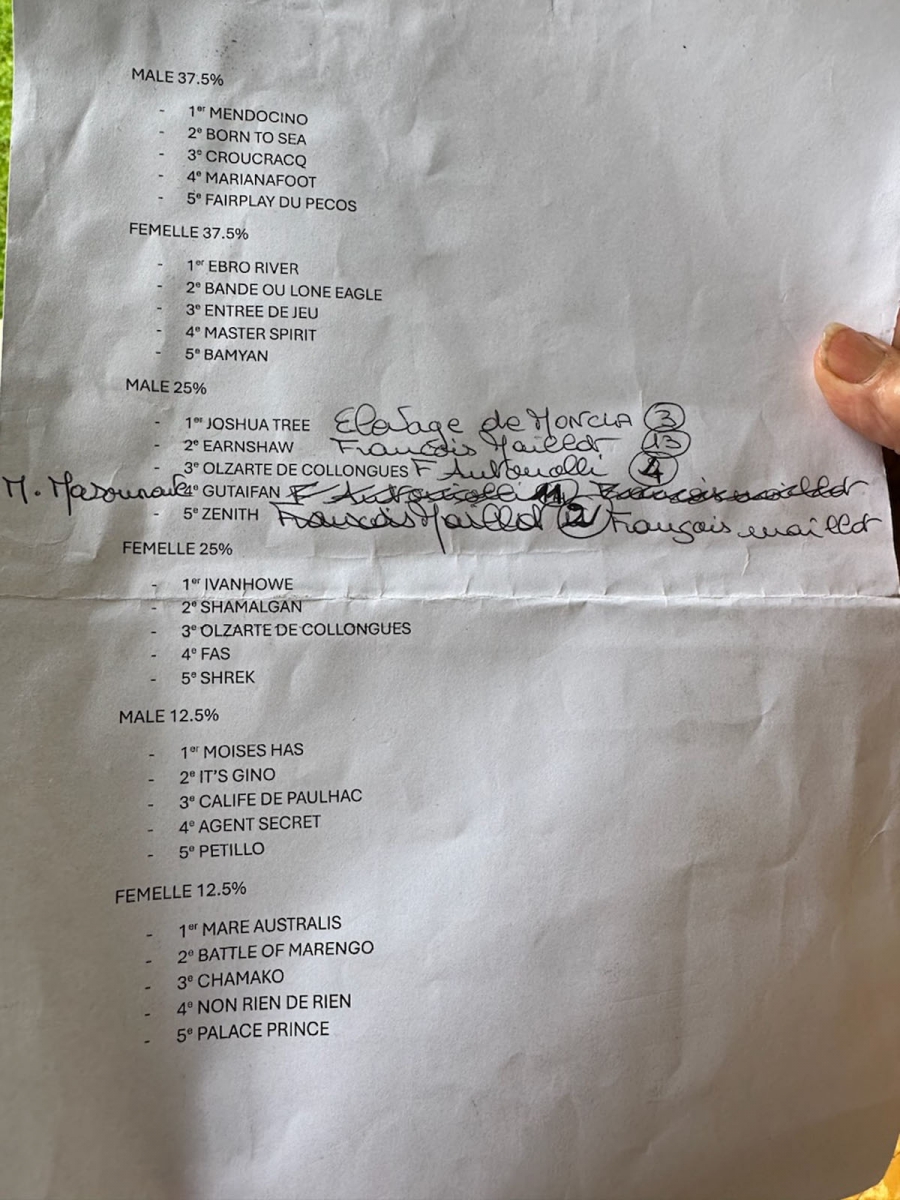 MALE 37.5%
- 1er MENDOCINO
- 2e BORN TO SEA
- 3e CROUCRACQ
- 4e MARIANAFOOT
- 5e FAIRPLAY DU PECOS
FEMELLE 37.5%
- 1er EBRO RIVER
- 2e BANDE OU LONE EAGLE
- 3e ENTREE DE JEU
- 4e MASTER SPIRIT
- 5e BAMYAN
MALE 25%
- 1er JOSHUA TREE Elevage de MONCLA 3
- 2e EARNSHAW François Maillot 13
- 3e OLZARTE DE COLLONGUES F 4
M. 4e GUTAIFAN F 11 François maillot
- 5e ZENITH François Maillot 2 François maillot
FEMELLE 25%
- 1er IVANHOWE
- 2e SHAMALGAN
- 3e OLZARTE DE COLLONGUES
- 4e FAS
- 5e SHREK
MALE 12.5%
- 1er MOISES HAS
- 2e IT'S GINO
- 3e CALIFE DE PAULHAC
- 4e AGENT SECRET
- 5e PETILLO
FEMELLE 12.5%
- 1er MARE AUSTRALIS
- 2e BATTLE OF MARENGO
- 3e CHAMAKO
- 4e NON RIEN DE RIEN
- 5e PALACE PRINCE